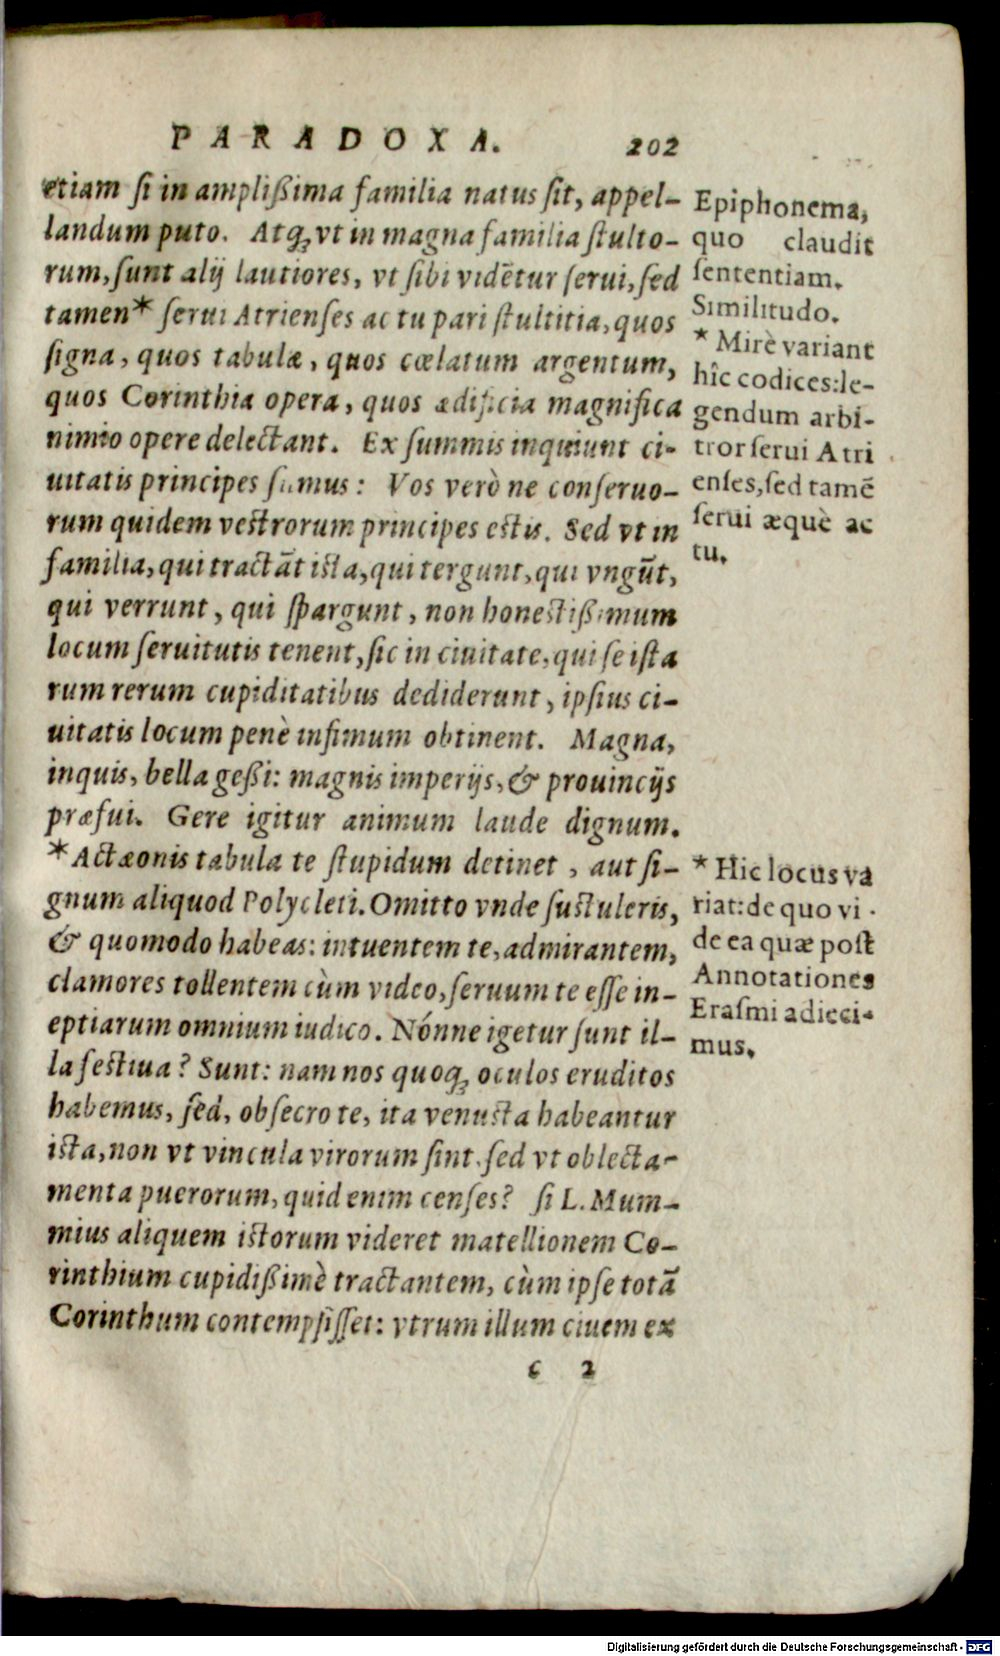 PARADOXA. 202
etiam ſi in amplißima familia natus ſit, appel-
landum puto. Atq; vt in magna familia ſtulto-
rum, ſunt alij lautiores, vt ſibi vidẽtur ſerui, ſed
tamen* ſerui Atrienſes ac tu pari ſtultitia, quos
ſigna, quos tabulæ, quos cœlatum argentum,
quos Corinthia opera, quos ædificia magnifica
nimio opere delectant. Ex ſummis inquiunt ci-
uitatis principes ſumus: Vos verò ne conſeruo-
rum quidem veſtrorum principes eſtis. Sed vt in
familia, qui tractãt iſta, qui tergunt, qui vngũt,
qui verrunt, qui ſpargunt, non honeſtißimum
locum ſeruitutis tenent, ſic in ciuitate, qui ſe iſta
rum rerum cupiditatibus dediderunt, ipſius ci-
uitatis locum penè infimum obtinent. Magna,
inquis, bella geßi: magnis imperijs, & prouincijs
præfui. Gere igitur animum laude dignum.
*Actæonis tabula te ſtupidum detinet, aut ſi-
gnum aliquod Polycleti. Omitto vnde ſuſtuleris,
& quomodo habeas: intuentem te, admirantem,
clamores tollentem cùm video, ſeruum te eſſe in-
eptiarum omnium iudico. Nónne igetur ſunt il-
la feſtiua? Sunt: nam nos quoq; oculos eruditos
habemus, ſed, obſecro te, ita venuſta habeantur
iſta, non vt vincula virorum ſint, ſed vt oblecta-
menta puerorum, quid enim cenſes? ſi L. Mum-
mius aliquem iſtorum videret matellionem Co-
rinthium cupidißimè tractantem, cùm ipſe totã
Corinthum contempſiſſet: vtrum illum ciuem ex
c 2
Epiphonema,
quo claudit
ſententiam.
Similitudo.
* Mirè variant
hîc codices: le-
gendum arbi-
tror ſerui Atri
enſes, ſed tamẽ
ſerui æquè ac
tu.
* Hic locus va
riat: de quo vi-
de ea quæ poſt
Annotationes
Eraſmi adieci-
mus.
Digitalisierung gefördert durch die Deutsche Forschungsgemeinschaft - DFG